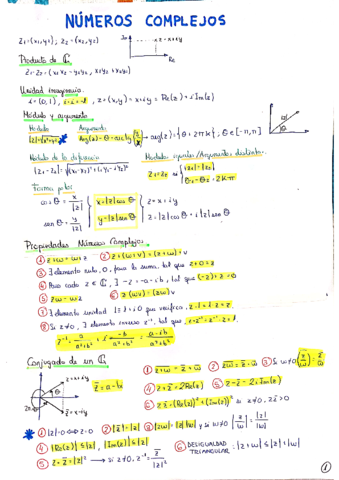 NÚMEROS COMPLEJOS
z₁=(x₁,y₁) ; z₂=(x₂,y₂)
Im
z=x+iy
Re
Producto de ℂ
z₁·z₂=(x₁x₂-y₁y₂, x₁y₂+x₂y₁)
Unidad imaginaria
i=(0,1), i·i=-1, z=(x,y)=x+iy=Re(z)+iIm(z)
Módulo y argumento
Módulo
Argumento
|z|
θ
Módulo de la diferencia
Módulos iguales/Argumentos distintos
|z₁-z₂|=
z₁=z₂
|z₁|=|z₂|
θ₁-θ₂=2kπ
Forma polar
cos θ = x/|z|
x=|z|cos θ
z=x+iy
sen θ = y/|z|
y=|z|sen θ
z=|z|cos θ+i|z|sen θ
Propiedades Números Complejos
① z+w=w+z
② z+(w+v)=(z+w)+v
③ ∃ elemento nulo, 0, para la suma, tal que z+0=z
④ Para cada z∈ℂ, ∃ -z=-a-ib, tal que (-z)+z=0
⑤ zw=wz
⑥ z(wv)=(zw)v
⑦ ∃ elemento unidad 1=1+i0 que verifica, z·1=1·z=z.
⑧ Si z≠0, ∃ elemento inverso z⁻¹, tal que z·z⁻¹=z⁻¹·z=1.
Conjugado de un ℂ
z=x+iy
z̄=a-bi
θ
z̄=x-iy
④ z+z̄=2Re(z)
⑤ z-z̄=2iIm(z)
⑥ zz̄=(Re(z))²+(Im(z))² si z≠0, zz̄>0
① |z|=0⇔z=0
② |z̄|=|z|
③ |zw|=|z||w| y si w≠0 |z/w|=|z|/|w|
④ |Re(z)|≤|z|, |Im(z)|≤|z|
⑤ z·z̄=|z|² → si z≠0, z⁻¹=z̄/|z|²
⑥ DESIGUALDAD TRIANGULAR: |z+w|≤|z|+|w|
①